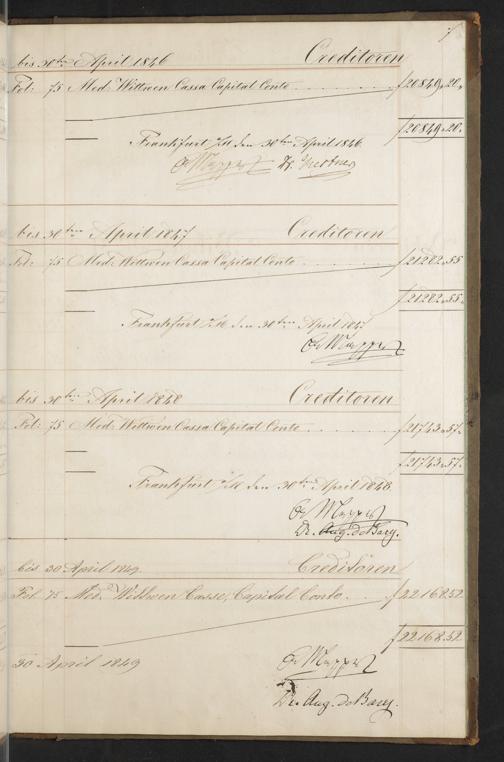 7
bis 30ten April 1846 Creditoren
Fol: 75 Med: Wittwen Cassa Capital Conto f 20849.20.
f 20849.20.
Frankfurt a/M den 30ten April 1846
Dr Mappes
bis 30ten April 1847 Creditoren
Fol: 75 Med: Wittwen Cassa Capital Conto f 21282.55
f 21282.55.
Frankfurt a/M den 30ten April 1847
Dr Mappes
bis 30ten April 1848 Creditoren
Fol: 75 Med: Wittwen Cassa Capital Conto f 21743.57.
f 21743.57.
Frankfurt a/M den 30ten April 1848.
Dr Mappes
Dr. Aug. de Bary.
bis 30 April 1849 Creditoren
Fol 75 Med. Wittwen Casse, Capital Conto. f 22168.52
f 22168.52
30 April 1849 Dr Mappes
Dr. Aug. de Bary.